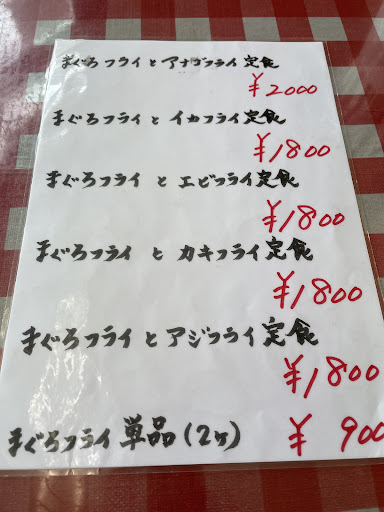 まぐろフライとアナゴフライ定食
¥2000
まぐろフライとイカフライ定食
¥1800
まぐろフライとエビフライ定食
¥1800
まぐろフライとカキフライ定食
¥1800
まぐろフライとアジフライ定食
¥1800
まぐろフライ単品(2ヶ) ¥900